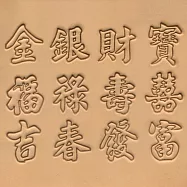 金銀財寶
福祿壽囍
吉春發富